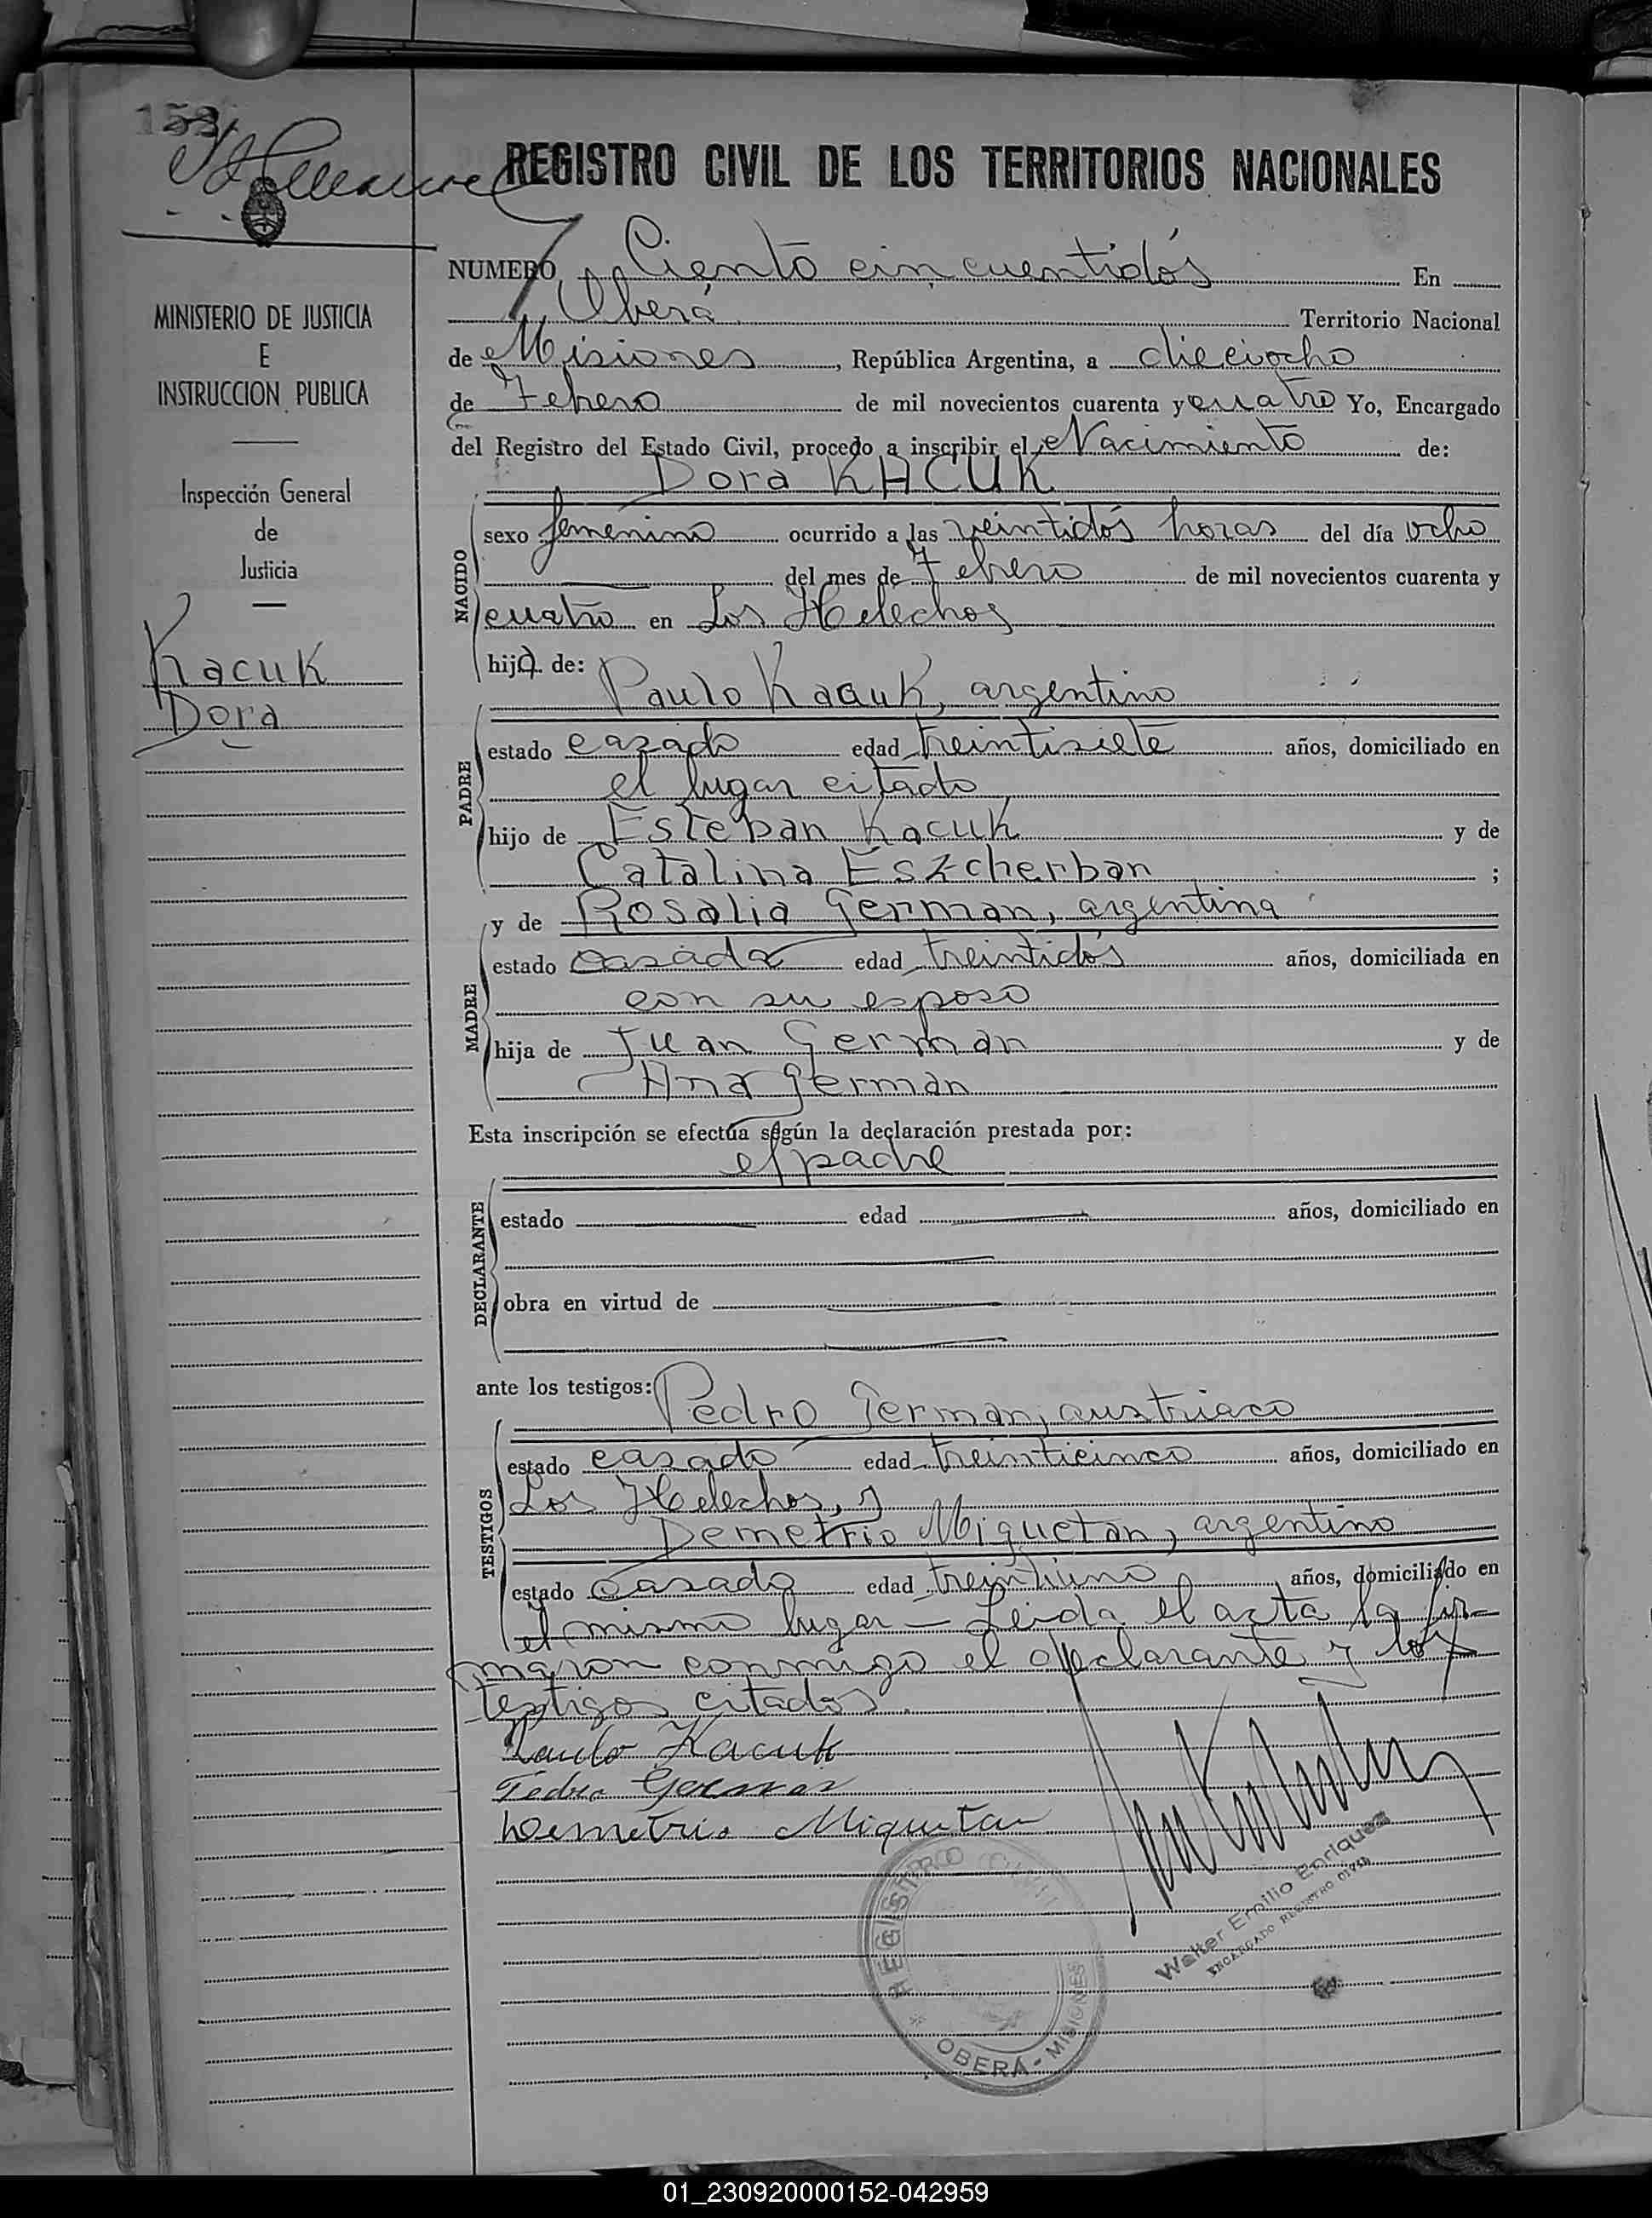 153
REGISTRO CIVIL DE LOS TERRITORIOS NACIONALES
MINISTERIO DE JUSTICIA
E
INSTRUCCION PUBLICA
Inspección General
de
Justicia
Kacuk
Dora
NUMERO Ciento cincuentidós En
Oberá Territorio Nacional
de Misiones, República Argentina, a dieciocho
de Febrero de mil novecientos cuarenta y cuatro Yo, Encargado
del Registro del Estado Civil, procedo a inscribir el Nacimiento de:
Dora KACUK
NACIDO
sexo femenino ocurrido a las veintidós horas del día ocho
del mes de Febrero de mil novecientos cuarenta y
cuatro en Los Helechos
hija de:
Paulo Kacuk, argentino
PADRE
estado casado edad treintisiete años, domiciliado en
el lugar citado
hijo de Esteban Kacuk y de
Catalina Eszcherban ;
y de Rosalia German, argentina
MADRE
estado casada edad treintidós años, domiciliada en
con su esposo
hija de Juan German y de
Ana German
Esta inscripción se efectúa según la declaración prestada por:
el padre
DECLARANTE
estado edad años, domiciliado en
obra en virtud de
ante los testigos:
Pedro German, austriaco
TESTIGOS
estado casado edad treinticinco años, domiciliado en
Los Helechos, y
Demetrio Miquetan, argentino
estado casado edad treintiuno años, domiciliado en
el mismo lugar - Leida el acta la fir-
maron conmigo el declarante y los
testigos citados.
Paulo Kacuk
Pedro German
Demetrio Miquetan
Walter Emilio Enriquez
ENCARGADO REGISTRO CIVIL
REGISTRO CIVIL
OBERÁ - MISIONES
01_230920000152-042959